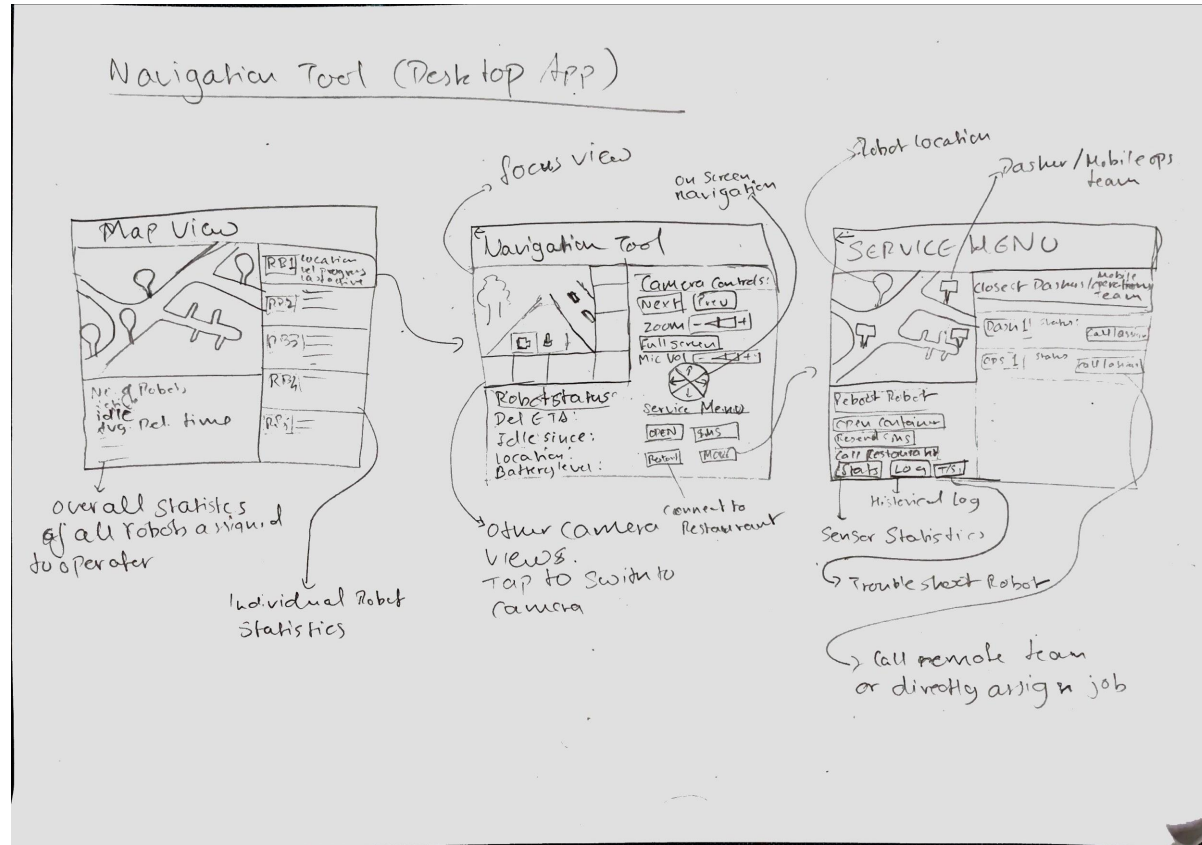 Navigation Tool (Desktop App)
Map View
RB1
location
del progress
last active
RB2
RB3
RB4
RB5
Nr. of Robots
idle
Avg. Del. time
Overall Statistics
of all robots assigned
to operater
Individual Robot
Statistics
focus view
on screen
navigation
Navigation Tool
Camera Controls:
Next Prev
Zoom - +
Full screen
Mic Vol - +
Robot status:
Del ETA:
Idle since:
Location:
Battery level:
Service Menu
OPEN SMS
Restart MORE
Connect to
Restaurant
Other Camera
Views.
Tap to Swith to
Camera
Robot location
Dasher/Mobile ops
team
SERVICE MENU
Closest Dashers/Mobile
operations
team
Dash 1 status:
Call/assign
OPS 1 status
Call/assign
Reboot Robot
Open Container
Resend SMS
Call Restaurant
Stats Log T/S
Historical Log
Sensor Statistics
Trouble shoot Robot
Call remote team
or directly assign job